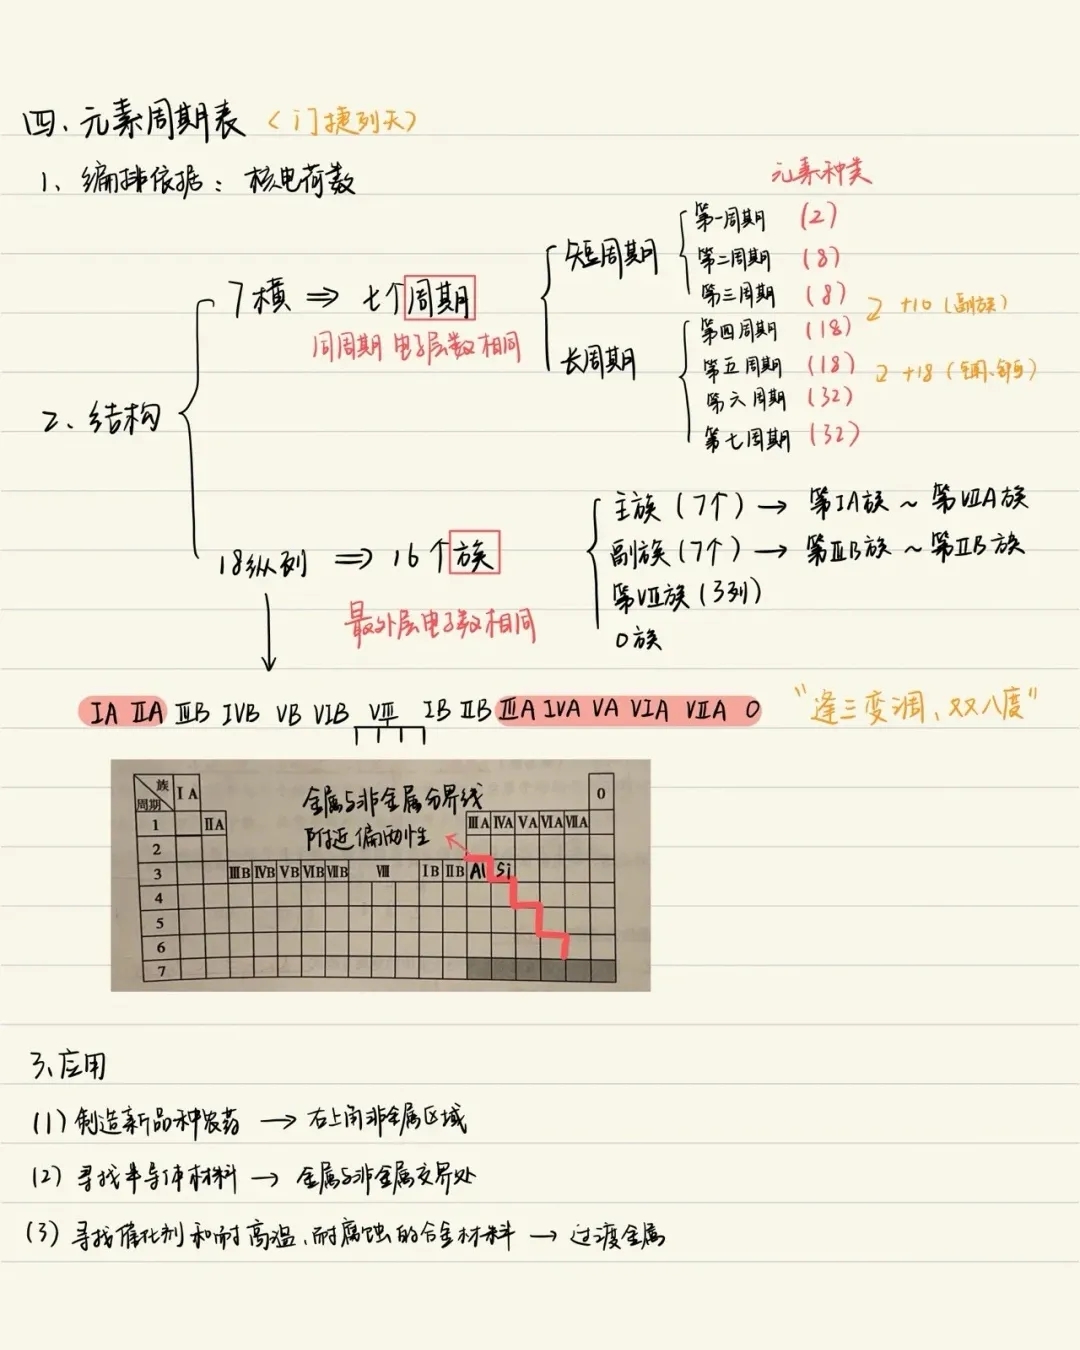 四、元素周期表 〈门捷列夫〉
1、编排依据：核电荷数
元素种类
2、结构
7横 ⇒ 七个周期
同周期 电子层数相同
短周期
第一周期 (2)
第二周期 (8)
第三周期 (8)
长周期
第四周期 (18)
第五周期 (18)
第六周期 (32)
第七周期 (32)
+10 (副族)
+18 (镧、锕)
18纵列 ⇒ 16个族
最外层电子数相同
主族 (7个) → 第ⅠA族 ~ 第ⅦA族
副族 (7个) → 第ⅢB族 ~ 第ⅡB族
第Ⅷ族 (3列)
0族
ⅠA ⅡA ⅢB ⅣB ⅤB ⅥB Ⅷ ⅠB ⅡB ⅢA ⅣA ⅤA ⅥA ⅦA 0
“逢三变调、双八度”
族
周期
ⅠA
0
金属与非金属分界线
附近偏两性
1 ⅡA ⅢA ⅣA ⅤA ⅥA ⅦA
2
3 ⅢB ⅣB ⅤB ⅥB ⅦB Ⅷ ⅠB ⅡB Al Si
4
5
6
7
3、应用
(1) 制造新品种农药 → 右上角非金属区域
(2) 寻找半导体材料 → 金属与非金属交界处
(3) 寻找催化剂和耐高温、耐腐蚀的合金材料 → 过渡金属